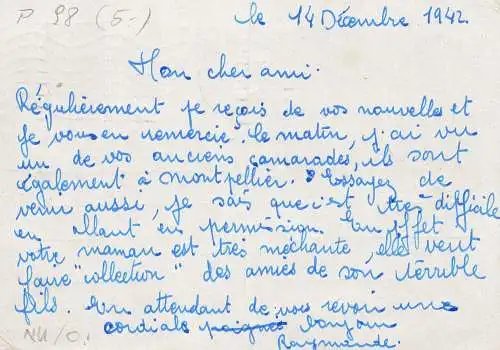 P 98 (5-)
le 14 Décembre 1942
Mon cher ami.
Régulièrement je reçois de vos nouvelles et
je vous en remercie. Ce matin, j'ai vu
un de vos anciens camarades, ils sont
également à Montpellier. Essayez de
venir aussi, je sais que c'est très difficile
en allant en permission. En effet
votre maman est très méchante, elle veut
faire "collection" des amies de son terrible
fils. En attendant de vous revoir une
cordiale poignet bonjour
Raymonde.
NU/0.